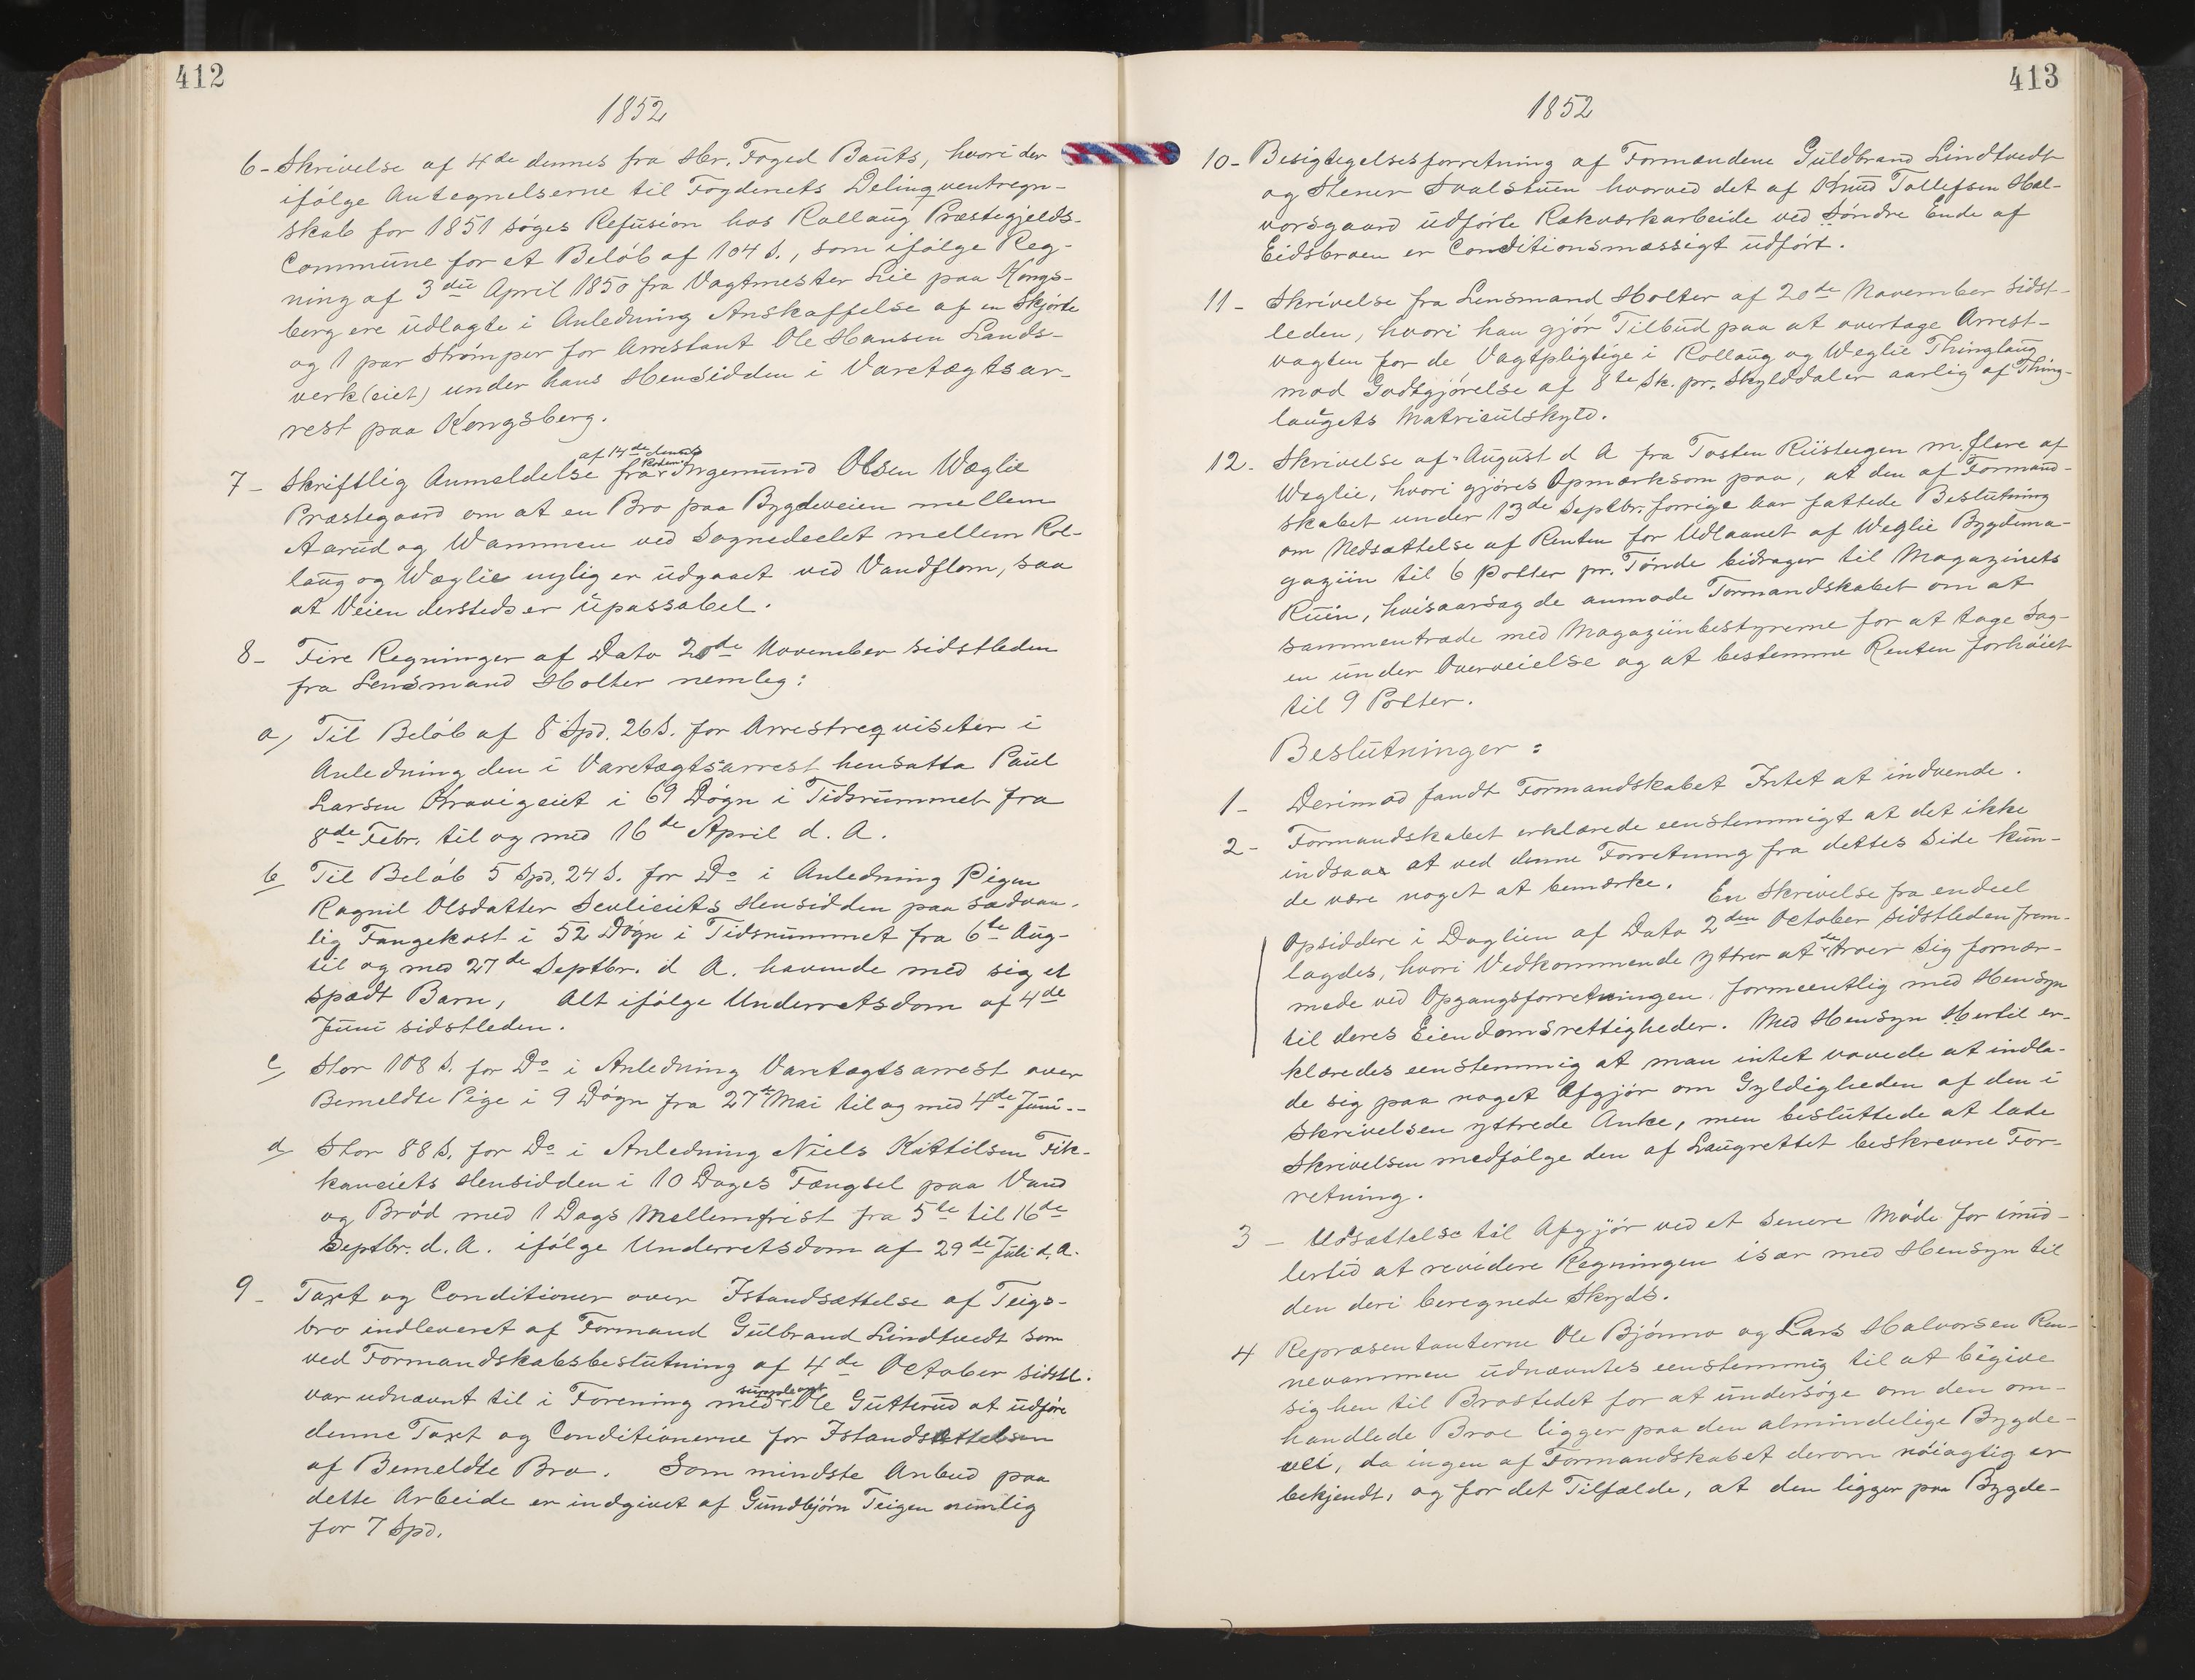 412
1852
6- Skrivelse af 4de dennes fra Hr. Foged Bauts, hvori der
ifölge Antegnelserne til Fogderiets Delinqventregn-
skab for 1851 söges Refusion hos Rollaug Præstegjelds-
Commune for et Belöb af 104 S., som ifölge Reg-
ning af 3die April 1850 fra Vagtmester Lie paa Kongs-
berg ere udlagte i Anledning Anskaffelse af en Skjorte
og 1 par Strömper for Arrestant Ole Hansen Lands-
verk(eiet) under hans Hensidden i Varetægtsar-
rest paa Kongsberg.
af 14de dennes
7- Skriftlig Anmeldelse fra Ingemund Olsen Wæglie
Præstegaard om at en Bro paa Bygdeveien mellem
Aarud og Wammen ved Sognedeelet mellem Rol-
laug og Wæglie nylig er udgaaet ved Vandflom, saa
at Veien dersteds er upassabel.
8- Fire Regninger af Dato 20de November sidstleden
fra Lensmand Holter nemleg:
a, Til Belöb af 8 Spd. 26 S. for Arrestreqviseter i
Anledning den i Varetægtsarrest hensatte Paul
Larsen Kravigeiet i 69 Dögn i Tidsrummet fra
8de Febr. til og med 16de April d. A.
b Til Belöb 5 Spd. 24 S. for Do i Anledning Pigen
Ragnil Olsdatter Sevlieiets Hensidden paa sædvan-
lig Fangekost i 52 Dögn i Tidsrummet fra 6te Aug-
til og med 27de Septbr. d A. havende med sig et
spædt Barn, Alt ifölge Underretsdom af 4de
Juni sidstleden.
c, Stor 108 S. for Do i Anledning Varetægtsarrest over
Bemeldte Pige i 9 Dögn fra 27de Mai til og med 4de Juni.-
d, Stor 88 S. for Do i Anledning Niels Kittilsen Fik-
kaneiets Hensidden i 10 Dages Fængsel paa Vand
og Bröd med 1 Dags Mellemfrist fra 5te til 16de
Septbr. d. A. ifölge Underretsdom af 29de Juli d. A.
9- Taxt og Conditioner over Istandsættelse af Teigs-
bro indleveret af Formand Gulbrand Lindtvedt som
ved Formandskabsbeslutning af 4de October sidstl.
var udnævnt til i Forening med Ole Gutterud at udföre
denne Taxt og Conditionerne for Istandsættelsen
af Bemeldte Bro. Som mindste Anbud paa
dette Arbeide er indgivet af Gundbjörn Teigen nemlig
for 7 Spd.
413
1852
10- Besigtegelsesforretning af Formændene Guldbrand Lindtvedt
og Stener Svalstuen hvorved det af Knud Tollefsen Hal-
vorsgaard udförte Rækværkarbeide ved Söndre Ende af
Eidsbroen er Conditionsmæssigt udfört.
11- Skrivelse fra Lensmand Holter af 20de November sidst-
leden, hvori han gjör Tilbud paa at overtage Arrest-
vagten for de Vagtpligtige i Rollaug og Weglie Thinglaug
mod Godtgjörelse af 8te Sk. pr. Skylddaler aarlig af Thing-
laugets Matriculskyld.
12. Skrivelse af August d A fra Tosten Riisteigen m. flere af
Weglie, hvori gjöres Opmærksom paa, at den af Formand-
skabet under 13de Septbr. forrige Aar fattede Beslutning
om Nedsættelse af Renten for Udlaanet af Weglie Bygdema-
gaziin til 6 Potter pr. Tönde bidrager til Magazinets
Ruin, hvisaarsag de anmode Formandskabet om at
sammentræde med Magaziinbestyrerne for at tage Sag-
en under Overveielse og at bestemme Renten forhöiet
til 9 Potter.
Beslutninger:
1- Derimod fandt Formandskabet Intet at indvende.
2- Formandskabet erklærede eenstemmigt at det ikke
indsaae at ved denne Forretning fra dettes Side kun-
de være noget at bemærke. En Skrivelse fra endeel
Opsiddere i Daglien af Dato 2den October sidstleden frem-
lagdes, hvori Vedkommende yttrer at de troer sig fornær-
mede ved Opgangsforretningen formeentlig med Hensyn
til deres Eiendomsrettigheder. Med Hensyn Hertil er-
klæredes eenstemmig at man intet vovede at indla-
de sig paa noget Afgjör om Gyldigheden af den i
Skrivelsen yttrede Anke, men besluttede at lade
Skrivelsen medfölge den af Laugrettet beskrevne For-
retning.
3- Udsættelse til Afgjör ved et senere Möde for imid-
lertid at revidere Regningen især med Hensyn til
den deri beregnede Skyds.
4 Repræsentanterne Ole Björnno og Lars Halvorsen Ren-
nevammen udnævntes eenstemmig til at begive
sig hen til Brostedet for at undersöge om den om-
handlede Broe ligger paa den almindelige Bygde-
vei, da ingen af Formandskabet derom nöiagtig er
bekjendt, og for det Tilfælde, at den ligger paa Bygde-